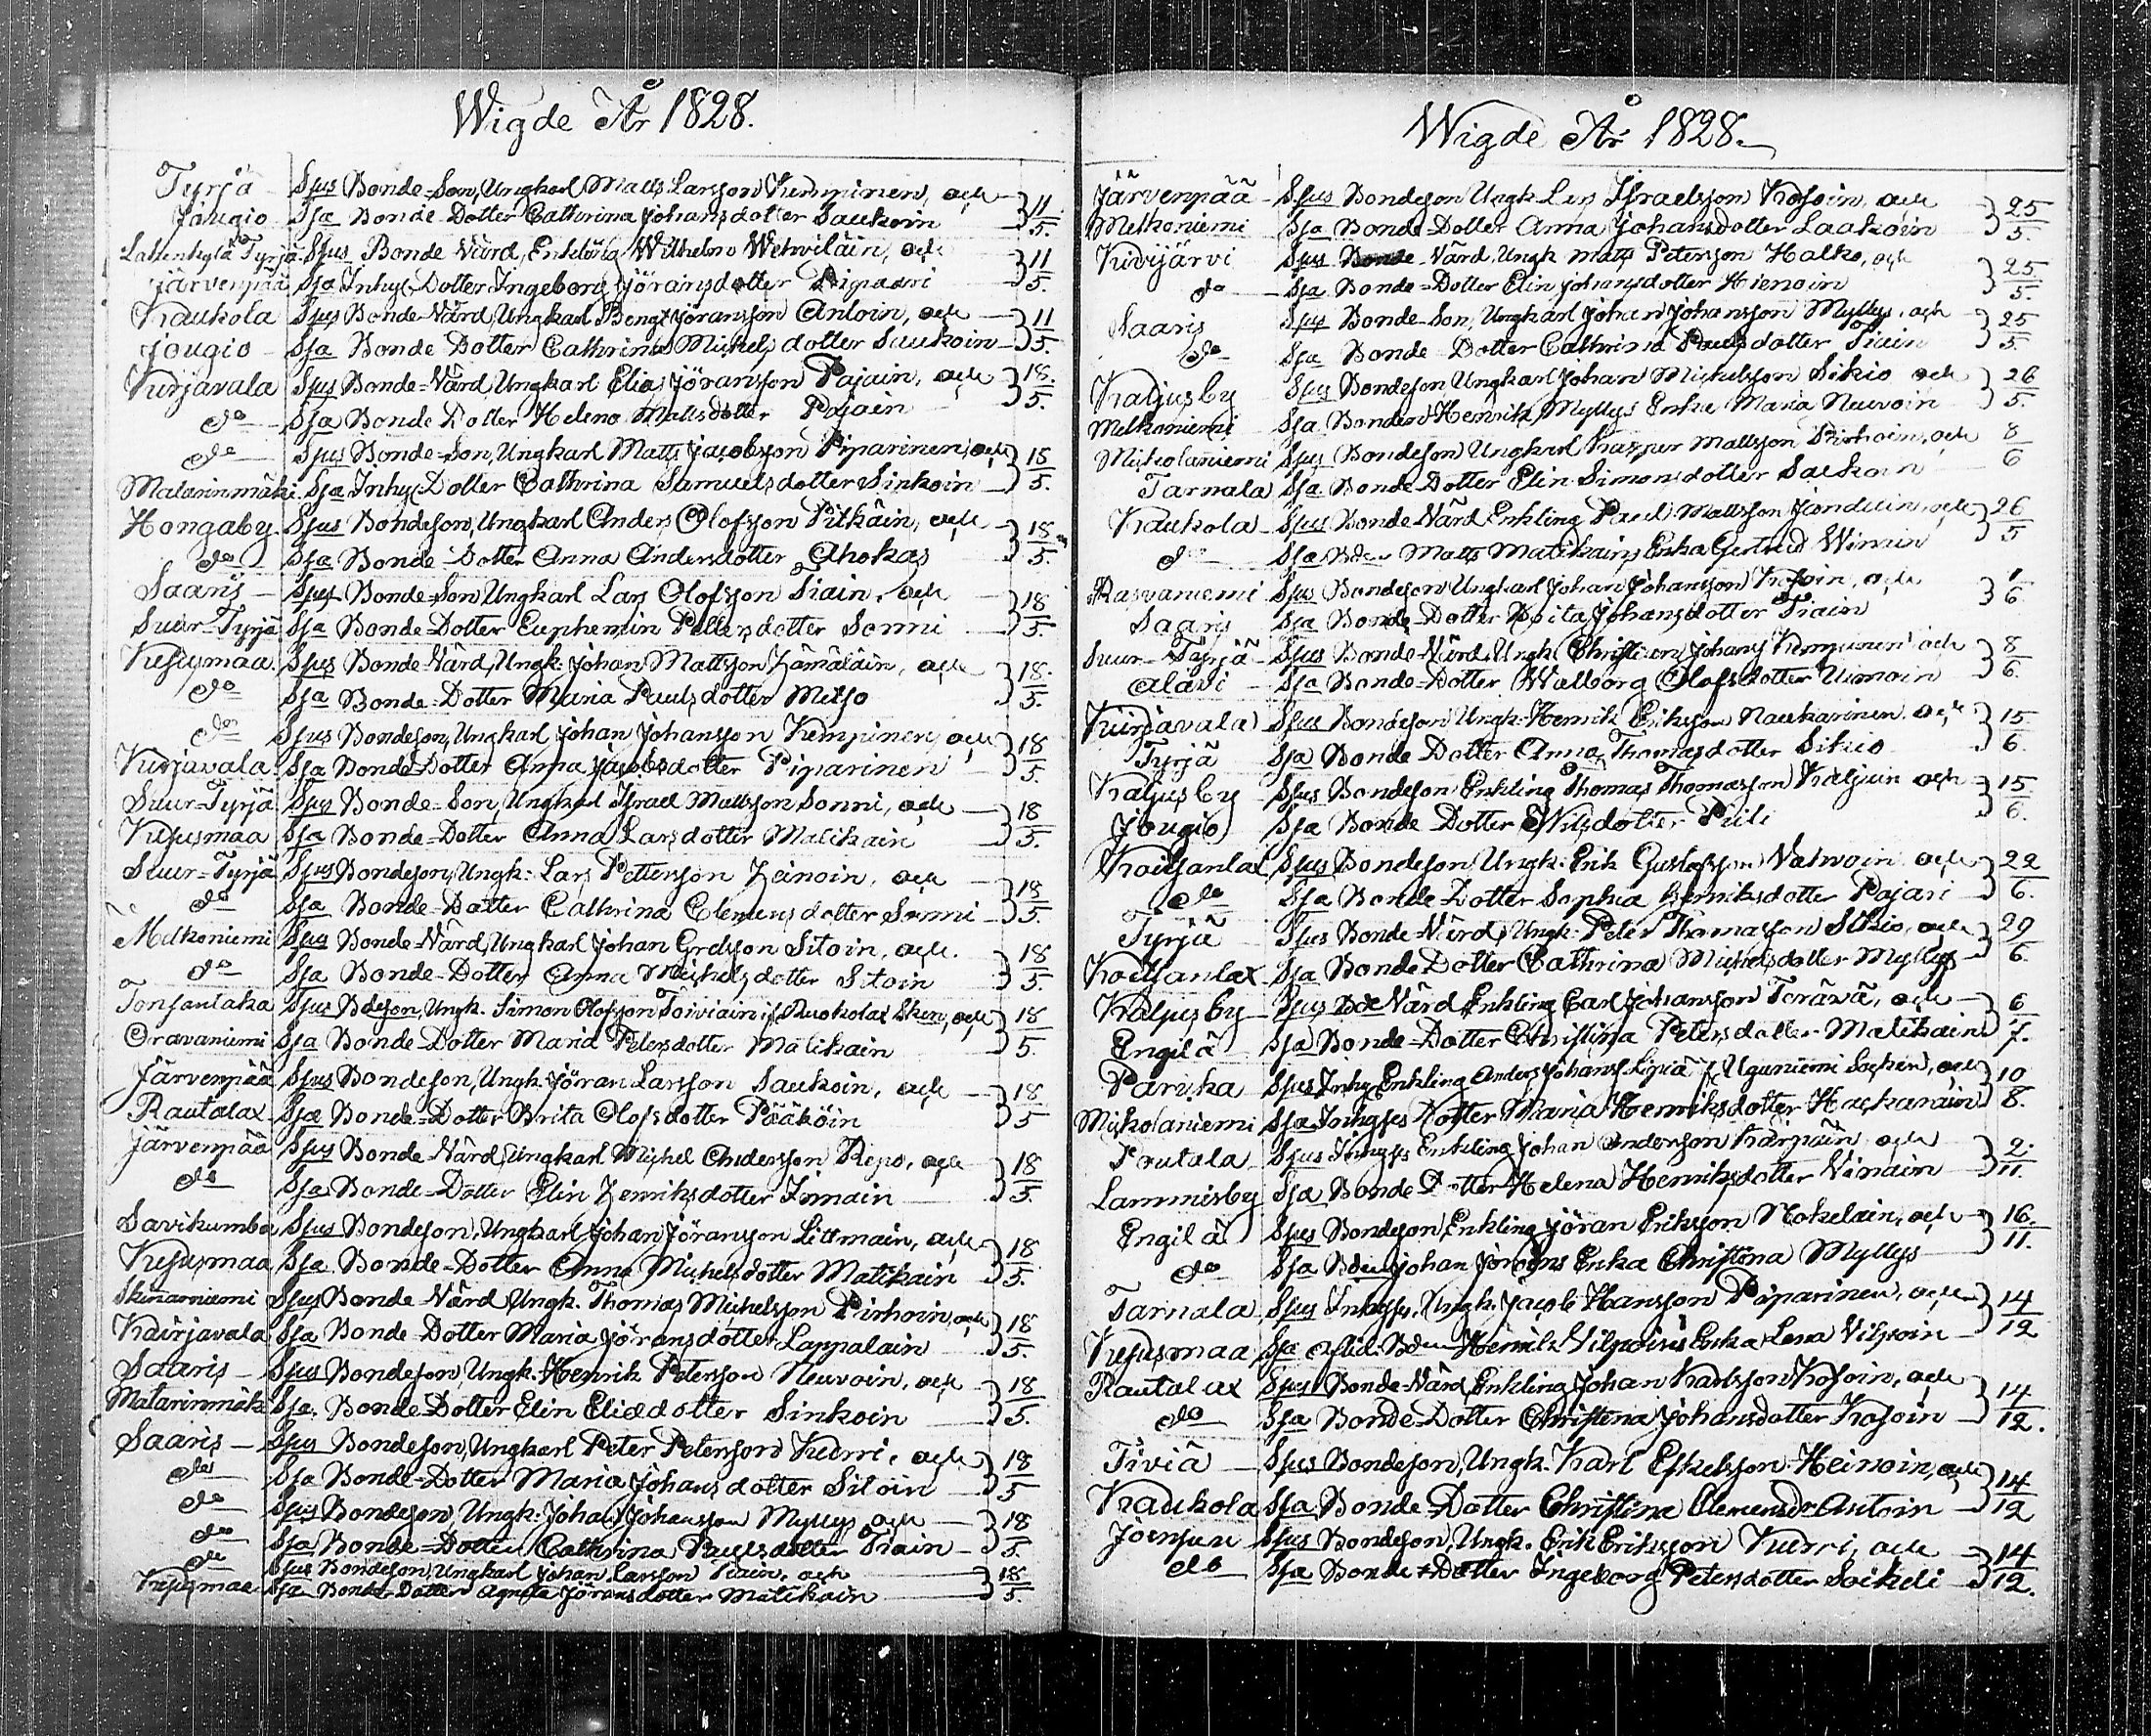 Wigde År 1828.
Tyrjä Sjus Bonde-Son, Ungkarl Matts Larsson Kemppinen, och } 11
Jougio Sja Bonde Dotter Cathrina Johansdotter Saukoin } 5.
Tyrjä Sjus Bonde Värd, Enkling Wilhelm Wehviläin, och } 11
Järvenpää Sja Inhys Dotter Ingeborg Jöransdotter } 5.
Kaukola Sjus Bonde-Värd, Ungkarl Bengt Jöransson Antoin, och } 11
Jougio Sja Bonde Dotter Cathrina Michelsdotter Saukoin } 5.
Kurjavala Sjus Bonde-Värd, Ungkarl Elias Jöransson Pajain, och } 18.
do Sja Bonde Dotter Helena Mattsdotter Pajain } 5.
do Sjus Bonde-Son, Ungkarl Matts Jacobsson Piparinen, och } 18
Matarinmäki Sja Inhys Dotter Cathrina Samuelsdotter Sinkoin } 5.
Hongaby Sjus Bondeson, Ungkarl Anders Olofsson Pitkäin, och } 18
do Sja Bonde-Dotter Anna Andersdotter Ahokas } 5.
Saaris Sjus Bonde-Son Ungkarl Lars Olofsson Tiain, och } 18
Suur-Tyrjä Sja Bonde-Dotter Euphemin Pettersdotter Sonni } 5.
Kesusmaa Sjus Bonde-Värd, Ungk. Johan Mattsson Hämäläin, och } 18.
do Sja Bonde-Dotter Maria Paulsdotter Mitjo } 5.
do Sjus Bondeson, Ungkarl Johan Johansson Kemppinen, och } 18
Kurjavala Sja Bonde-Dotter Anna Jacobsdotter Piparinen } 5.
Suur-Tyrjä Sjus Bonde-Son, Ungkarl Israel Mattsson Sonni, och } 18
Kesusmaa Sja Bonde-Dotter Anna Larsdotter Matikain } 5.
Suur-Tyrjä Sjus Bondeson, Ungk: Lars Pettersson Heinoin, och } 18
do Sja Bonde-Dotter Cathrina Clemensdotter Sonni } 5.
Melkoniemi Sjus Bonde-Värd, Ungkarl Johan Gretsson Sitoin, och } 18
do Sja Bonde-Dotter Anna Michelsdotter Sitoin } 5.
Tonsantaka Sjus Bdeson, Ungk. Simon Olofsson Toiviain if. Ruokolax Sken, och } 18
Oravaniemi Sja Bonde-Dotter Maria Petersdotter Matikain } 5.
Järvenpää Sjus Bondeson, Ungk. Jöran Larsson Saukoin, och } 18
Rautalax Sja Bonde-Dotter Brita Olofsdotter Pääköin } 5
Järvenpää Sjus Bonde Värd, Ungkarl Michel Andersson Repo, och } 18
do Sja Bonde-Dotter Elin Henriksdotter Immain } 5.
Savikumba Sjus Bondeson, Ungkarl Johan Jöransson Littmain, och } 18
Kesusmaa Sja Bonde-Dotter Anna Michelsdotter Matikain } 5.
Sjus Bonde-Värd, Ungk. Thomas Michelsson Pirhoin, och } 18
Kurjavala Sja Bonde-Dotter Maria Jöransdotter Lappalain } 5.
Saaris Sjus Bondeson, Ungk. Henrik Petersson Neuvoin, och } 18
Matarinmäki Sja Bonde-Dotter Elin Eliædotter Sinkoin } 5.
Saaris Sjus Bondeson, Ungkarl Peter Petersson Kurri, och } 18
do Sja Bonde-Dotter Maria Johansdotter Sitoin } 5
do Sjus Bondeson, Ungk: Johan Johansson Myllys, och } 18
do Sja Bonde-Dotter Cathrina Paulsdotter Tiain } 5.
do Sjus Bondeson, Ungkarl Johan Larsson Tiain, och } 18
Kesusmaa Sja Bonde-Dotter Agneta Jöransdotter Matikain } 5.
Wigde År 1828.
Järvenpää Sjus Bondeson Ungk. Lars Israelsson Kosoin, och } 25
Melkoniemi Sja Bonde-Dotter Anna Johansdotter Laakoin } 5.
Kivijärvi Sjus Bonde-Värd, Ungk Matts Petersson Halko, och } 25.
do Sja Bonde-Dotter Elin Johansdotter Hienoin } 5.
Saaris Sjus Bonde-Son, Ungkarl Johan Johansson Myllys, och } 25
do Sja Bonde-Dotter Cathrina Paulsdotter Tiain } 5
Kaljusby Sjus Bondeson Ungkarl Johan Michelsson Sikio och } 26
Melkoniemi Sja Bonden Henrik Myllys Enka Maria Neuvoin } 5.
Mikolaniemi Sjus Bondeson Ungkarl Kasper Mattsson Pirhoin, och 8
Tarnala Sja Bonde-Dotter Elin Simonsdotter Saukoin 6
Kaukola Sjus Bonde-Värd Enkling Paul Mattsson och } 26
do Sja Bden Matts Matikains Enka Gertrud } 5
Rasvaniemi Sjus Bondeson Ungkarl Johan Johansson Kosoin, och } 1
Saaris Sja Bonde-Dotter Brita Johansdotter Tiain } 6
Suur-Tyrjä Sjus Bonde-Värd, Ungk. Christian Johans Kemppinen och } 8
Alavi Sja Bonde-Dotter Walborg Olofsdotter Uimoin } 6.
Kurjavala Sjus Bondeson Ungk: Henrik Eriksson Naukarinen och } 15
Tyrjä Sja Bonde Dotter Anna Thomasdotter Sikio } 6.
Kaljusby Sjus Bondeson Enkling Thomas Thomasson Kaljuin och } 15
Jougio Sja Bonde Dotter Nilsdotter Puli } 6.
Koitsanlax Sjus Bondeson Ungk: Erik Gustafsson Natwoin och } 22
do Sja Bonde Dotter Sophia Henriksdotter Pajari } 6.
Tyrjä Sjus Bonde-Värd, Ungk: Peter Thomasson Sikio, och } 29
Koitsanlax Sja Bonde Dotter Cathrina Michelsdotter Myllys } 6.
Kaljusby Sjus Bde Värd Enkling Carl Johansson Toräwä, och } 6
Engilä Sja Bonde-Dotter Christina Petersdotter Matikain } 7.
Parikka Sjus Inhy. Enkling Anders Johanss. if. Uguniemi Socken, och } 10
Mikolaniemi Sja Inhyses Dotter Maria Henriksdotter Hackarain } 8.
Poutala Sjus Inhyses Enkling Johan Andersson Kärpäin, och } 2.
Lamminsby Sja Bonde Dotter Helena Henriksdotter Vinain } 11.
Engilä Sjus Bondeson, Enkling Jöran Eriksson Nokelain, och } 16.
do Sja Bden Johan Jöröins Enka Christina Myllys } 11.
Tarnala Sjus Inhyses, Ungk. Jacob Hansson Piparinen, och } 14
Kesusmaa Sja aflid. Bden Henrik Vilpoins Enka Lena Vilpoin } 12
Rautalax Sjus Bonde-Värd, Enkling Johan Karlsson Kosoin, och } 14
do Sja Bonde-Dotter Christina Johansdotter Kosoin } 12.
Tiviä Sjus Bondeson, Ungk. Karl Eskelsson Heinoin, och } 14
Kaukola Sja Bonde-Dotter Christina Clemensdr Antoin } 12
Joensuu Sjus Bondeson, Ungk. Erik Eriksson Kurri, och } 14
do Sja Bonde-Dotter Ingeborg Petersdotter Soikeli } 12.